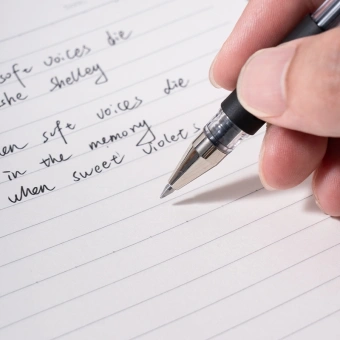 soft voices die
she shelley
soft voices die
in the memory
when sweet violets